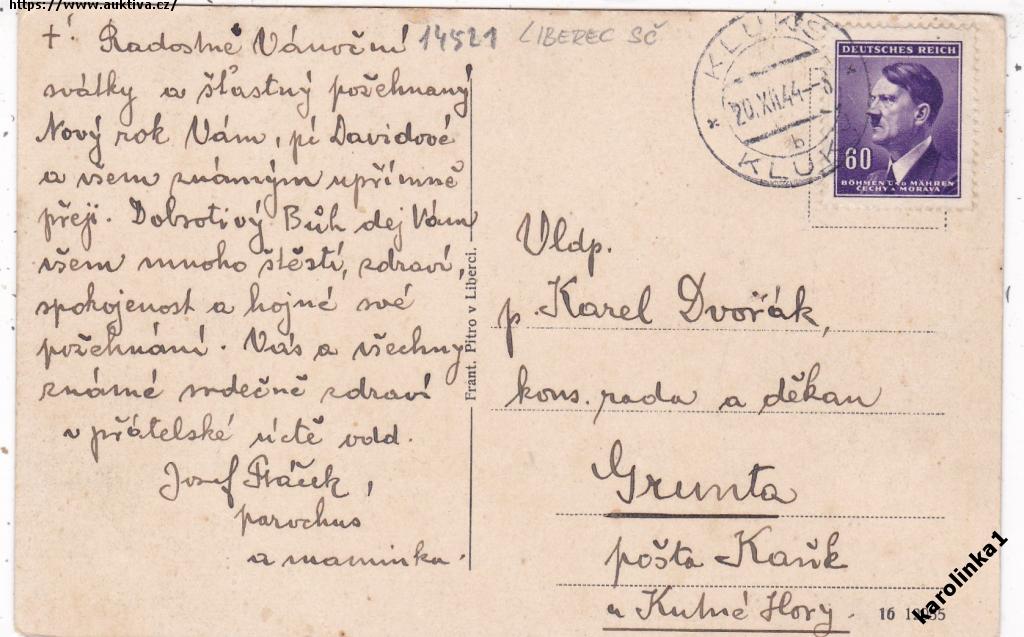 https://www.auktiva.cz/
† Radostné Vánoční
svátky a šťastný požehnaný
Nový rok Vám, pí Davidové
a všem známým upřímně
přeji. Dobrotivý Bůh dej Vám
všem mnoho štěstí, zdraví,
spokojenost a hojné své
požehnání. Vás a všechny
známé srdečně zdraví
v přátelské úctě odd.
Josef Ptáček,
parochus
a maminka.
14521 LIBEREC SČ
Frant. Pitro v Liberci.
KLUKS
20.XII.44
b
KLUK
DEUTSCHES REICH
60
BÖHMEN UND MÄHREN
ČECHY A MORAVA
Vldp.
p. Karel Dvořák,
kons. rada a děkan
Grunta
pošta Kaňk
u Kutné Hory.
16
karolinka1